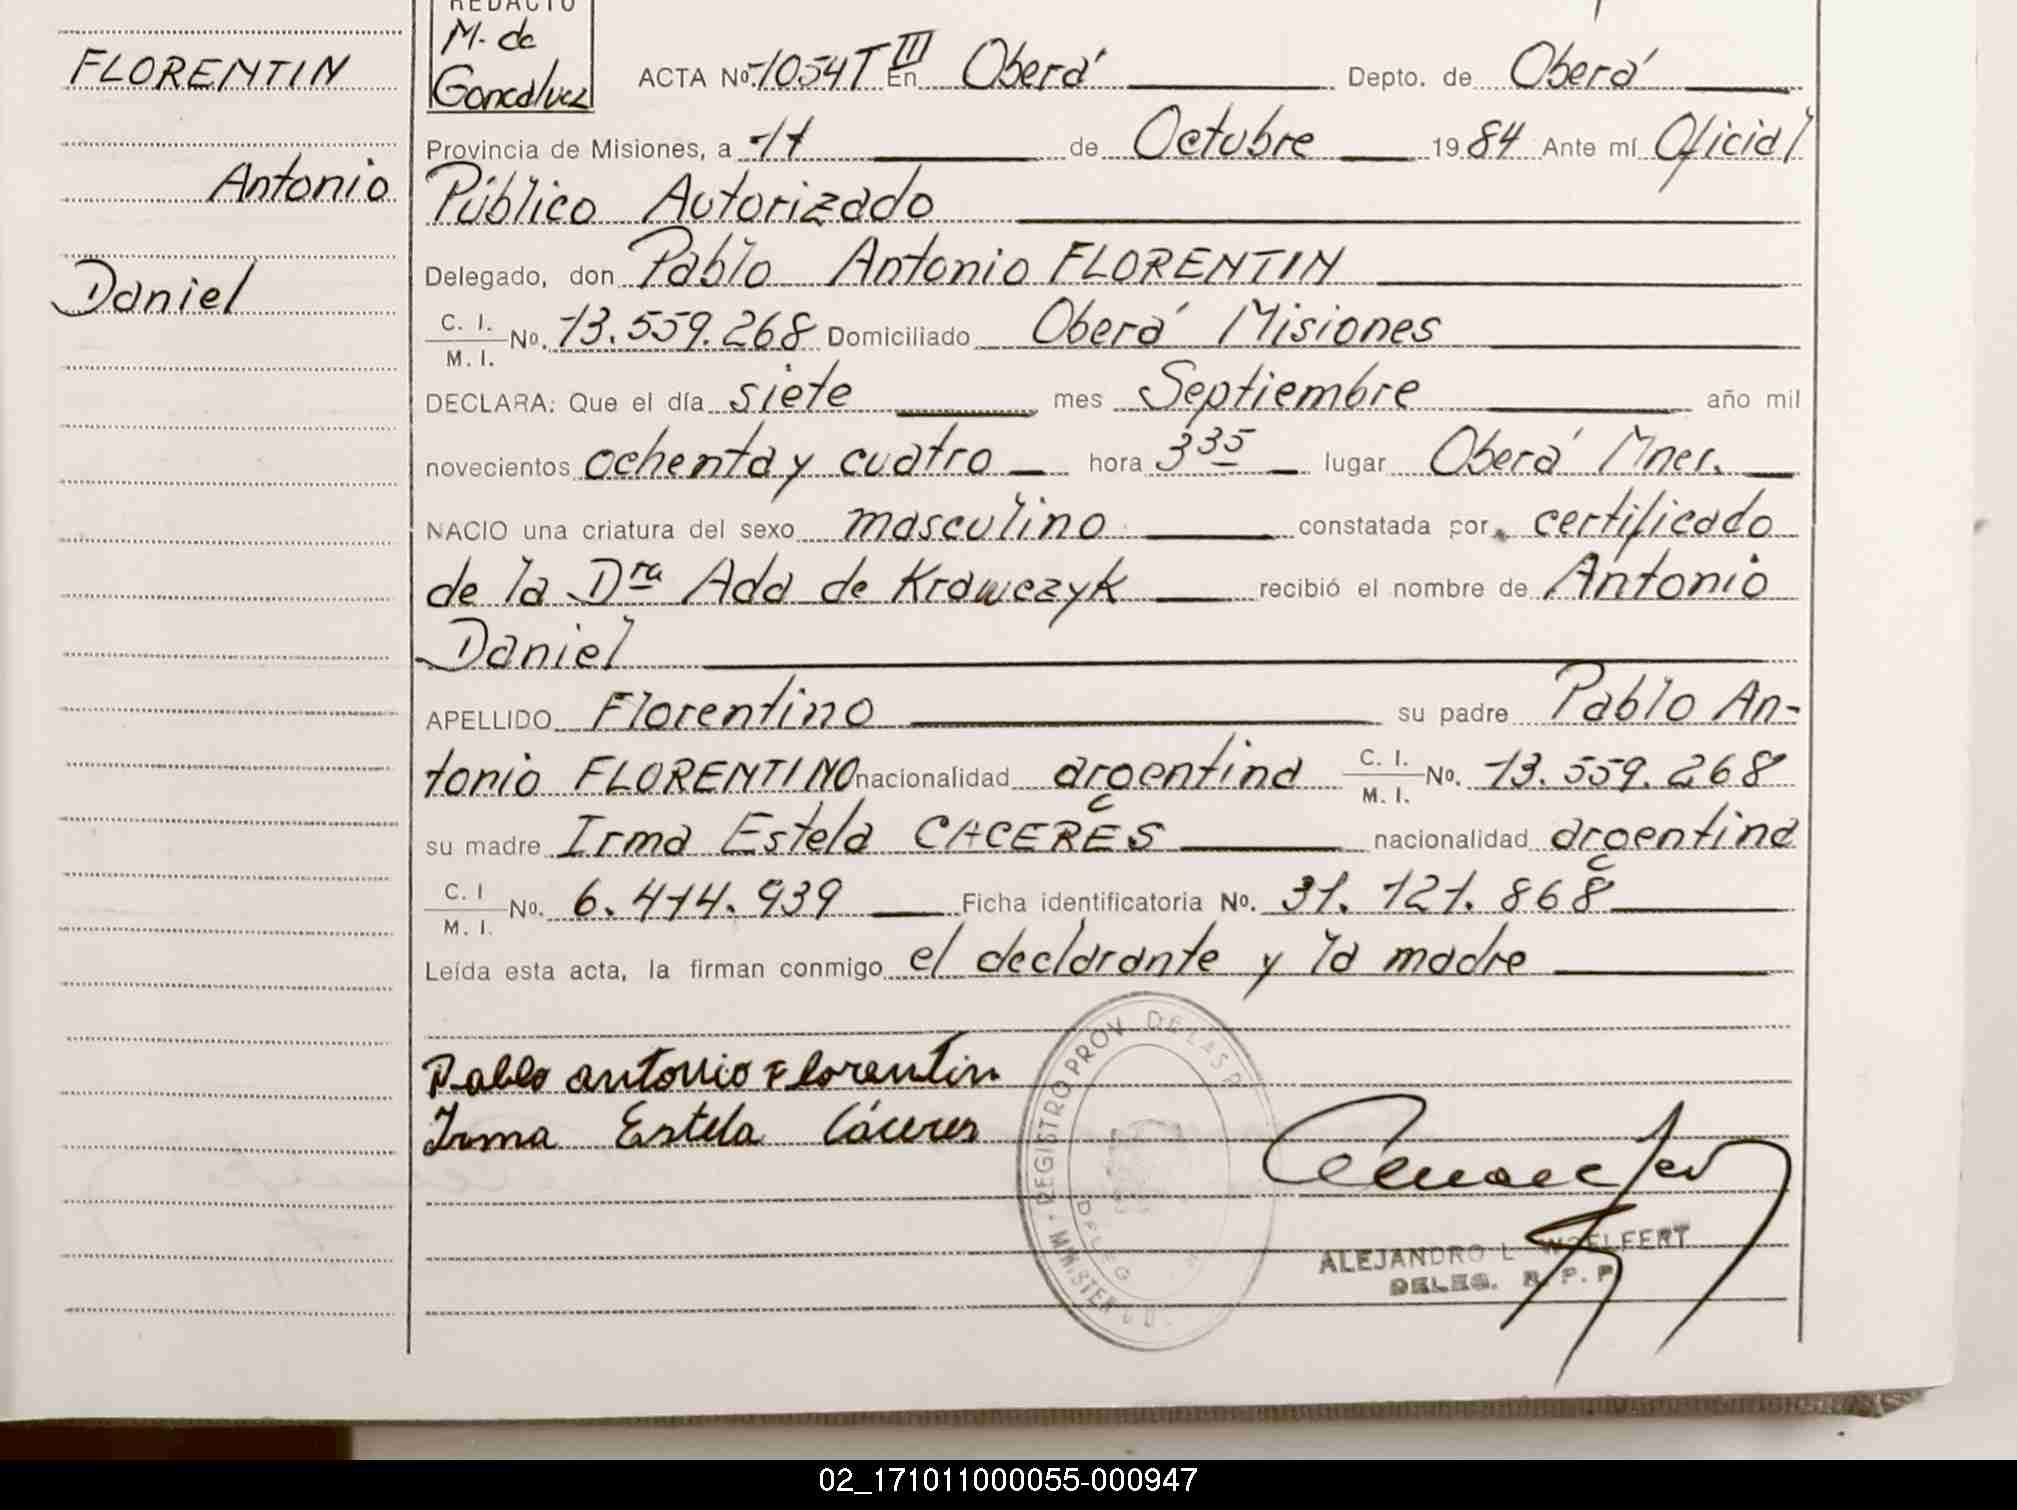 REDACTO
M. de
Goncalvez
FLORENTIN
Antonio
Daniel
ACTA No. 1054 T III En Oberá Depto. de Oberá
Provincia de Misiones, a 11 de Octubre 1984 Ante mí Oficial
Público Autorizado
Delegado, don Pablo Antonio FLORENTIN
C. I. M. I. No. 13.559.268 Domiciliado Oberá Misiones
DECLARA: Que el día siete mes Septiembre año mil
novecientos ochenta y cuatro hora 3 35 lugar Oberá Mnes.
NACIO una criatura del sexo masculino constatada por certificado
de la Dra Ada de Krawczyk recibió el nombre de Antonio
Daniel
APELLIDO Florentino su padre Pablo An-
tonio FLORENTINO nacionalidad argentina C. I. M. I. No. 13.559.268
su madre Irma Estela CACERES nacionalidad argentina
C. I M. I. No. 6.414.939 Ficha identificatoria No. 31.121.868
Leída esta acta, la firman conmigo el declarante y la madre
Pablo antonio Florentin
Irma Estela Cáceres
REGISTRO PROV. DE LAS P
DELEG
ALEJANDRO L WOELFERT
DELEG. R. P. P
02_171011000055-000947